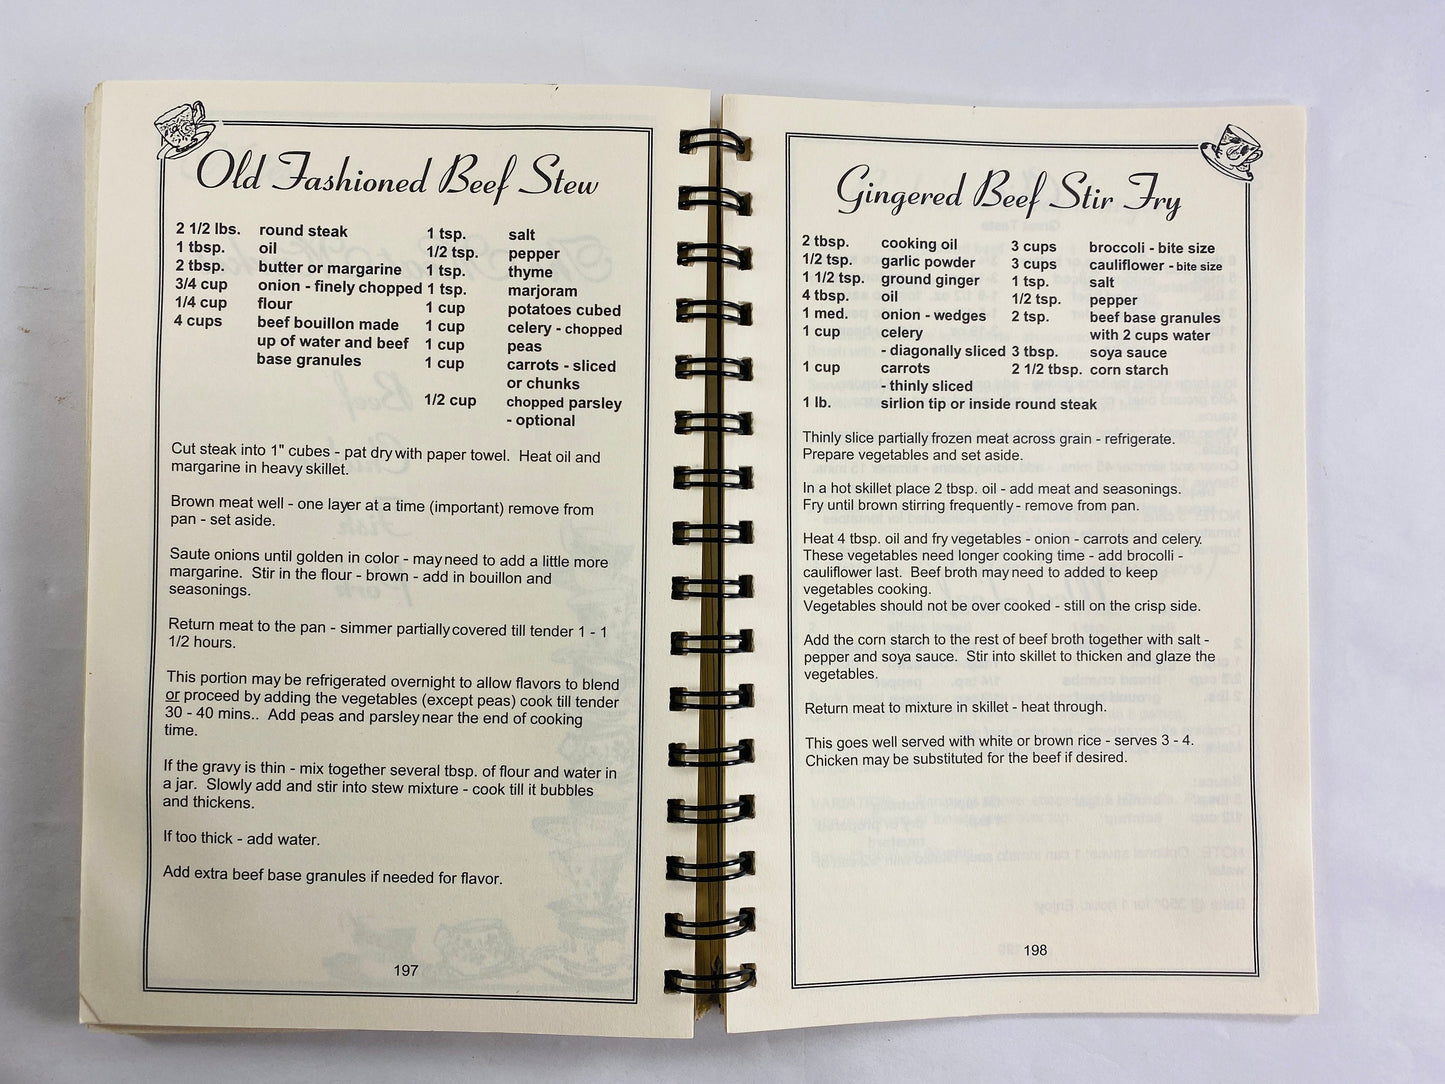 Old Fashioned Beef Stew
2 1/2 lbs. round steak
1 tbsp. oil
2 tbsp. butter or margarine
3/4 cup onion - finely chopped
1/4 cup flour
4 cups beef bouillon made
up of water and beef
base granules
1 tsp. salt
1/2 tsp. pepper
1 tsp. thyme
1 tsp. marjoram
1 cup potatoes cubed
1 cup celery - chopped
1 cup peas
1 cup carrots - sliced
or chunks
1/2 cup chopped parsley
- optional
Cut steak into 1" cubes - pat dry with paper towel. Heat oil and
margarine in heavy skillet.
Brown meat well - one layer at a time (important) remove from
pan - set aside.
Saute onions until golden in color - may need to add a little more
margarine. Stir in the flour - brown - add in bouillon and
seasonings.
Return meat to the pan - simmer partially covered till tender 1 - 1
1/2 hours.
This portion may be refrigerated overnight to allow flavors to blend
or proceed by adding the vegetables (except peas) cook till tender
30 - 40 mins.. Add peas and parsley near the end of cooking
time.
If the gravy is thin - mix together several tbsp. of flour and water in
a jar. Slowly add and stir into stew mixture - cook till it bubbles
and thickens.
If too thick - add water.
Add extra beef base granules if needed for flavor.
197
Gingered Beef Stir Fry
2 tbsp. cooking oil
1/2 tsp. garlic powder
1 1/2 tsp. ground ginger
4 tbsp. oil
1 med. onion - wedges
1 cup celery
- diagonally sliced
1 cup carrots
- thinly sliced
1 lb. sirlion tip or inside round steak
3 cups broccoli - bite size
3 cups cauliflower - bite size
1 tsp. salt
1/2 tsp. pepper
2 tsp. beef base granules
with 2 cups water
3 tbsp. soya sauce
2 1/2 tbsp. corn starch
Thinly slice partially frozen meat across grain - refrigerate.
Prepare vegetables and set aside.
In a hot skillet place 2 tbsp. oil - add meat and seasonings.
Fry until brown stirring frequently - remove from pan.
Heat 4 tbsp. oil and fry vegetables - onion - carrots and celery.
These vegetables need longer cooking time - add brocolli -
cauliflower last. Beef broth may need to added to keep
vegetables cooking.
Vegetables should not be over cooked - still on the crisp side.
Add the corn starch to the rest of beef broth together with salt -
pepper and soya sauce. Stir into skillet to thicken and glaze the
vegetables.
Return meat to mixture in skillet - heat through.
This goes well served with white or brown rice - serves 3 - 4.
Chicken may be substituted for the beef if desired.
198